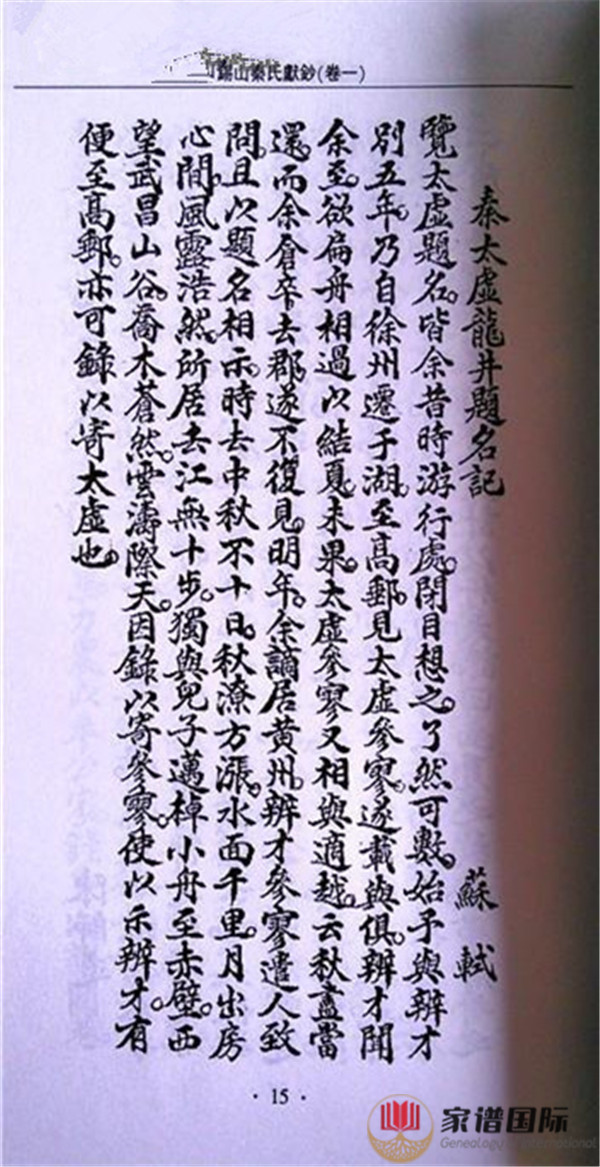 錫山秦氏獻鈔(卷一)
秦太虛龍井題名記
蘇軾
覽太虛題名。皆余昔時游行處。閉目想之。了然可數。始予與辨才
別五年。乃自徐州遷于湖。至高郵。見太虛參寥。遂載與俱。辨才聞
余至。欲扁舟相過以結夏。未果。太虛參寥又相與適越。云秋盡當
還。而余倉卒去郡。遂不復見。明年。余謫居黃州。辨才參寥遣人致
問。且以題名相示。時去中秋不十日。秋潦方漲。水面千里。月出房
心間。風露浩然。所居去江無十步。獨與兒子邁棹小舟至赤壁。西
望武昌山谷。喬木蒼然。雲濤際天。因錄以寄參寥。使以示辨才。有
便至高郵。亦可錄以寄太虛也。
·15·
家谱国际
Genealogy International